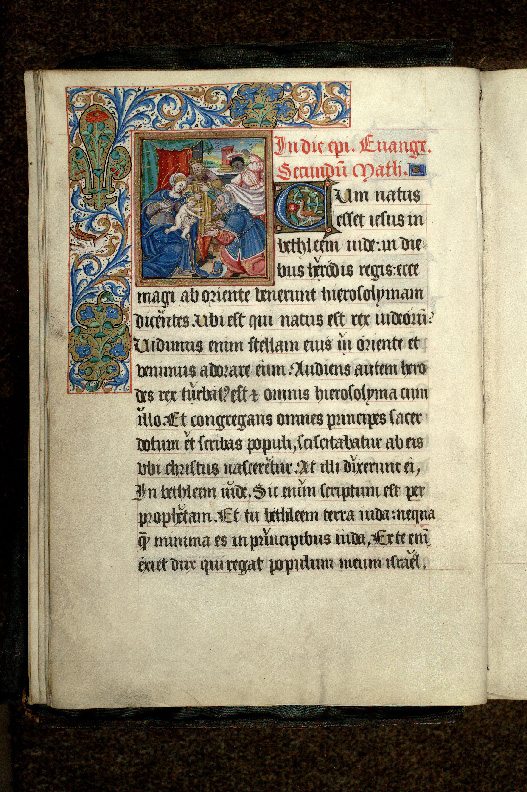 In die epi. Euange.
Secundũ Math.
Cum natus
esset iesus in
bethleem iude: in die
bus herodis regis: ecce
magi ab oriente venerunt hierosolymam
dicentes. Vbi est qui natus est rex iudeorũ?
Vidimus enim stellam eius in oriente et
venimus adorare eum. Audiens autem hero
des rex turbatꝰ est & omnis hierosolyma cum
illo. Et congregans omnes principes sacer
dotum et scribas populi, sciscitabatur ab eis
vbi christus nasceretur. At illi dixerunt ei,
In bethleem iude. Sic enim scriptum est per
prophetam. Et tu bethleem terra iuda: nequa
q̃ minima es in principibus iuda, Ex te em̃
exiet dux qui regat populum meum israel.